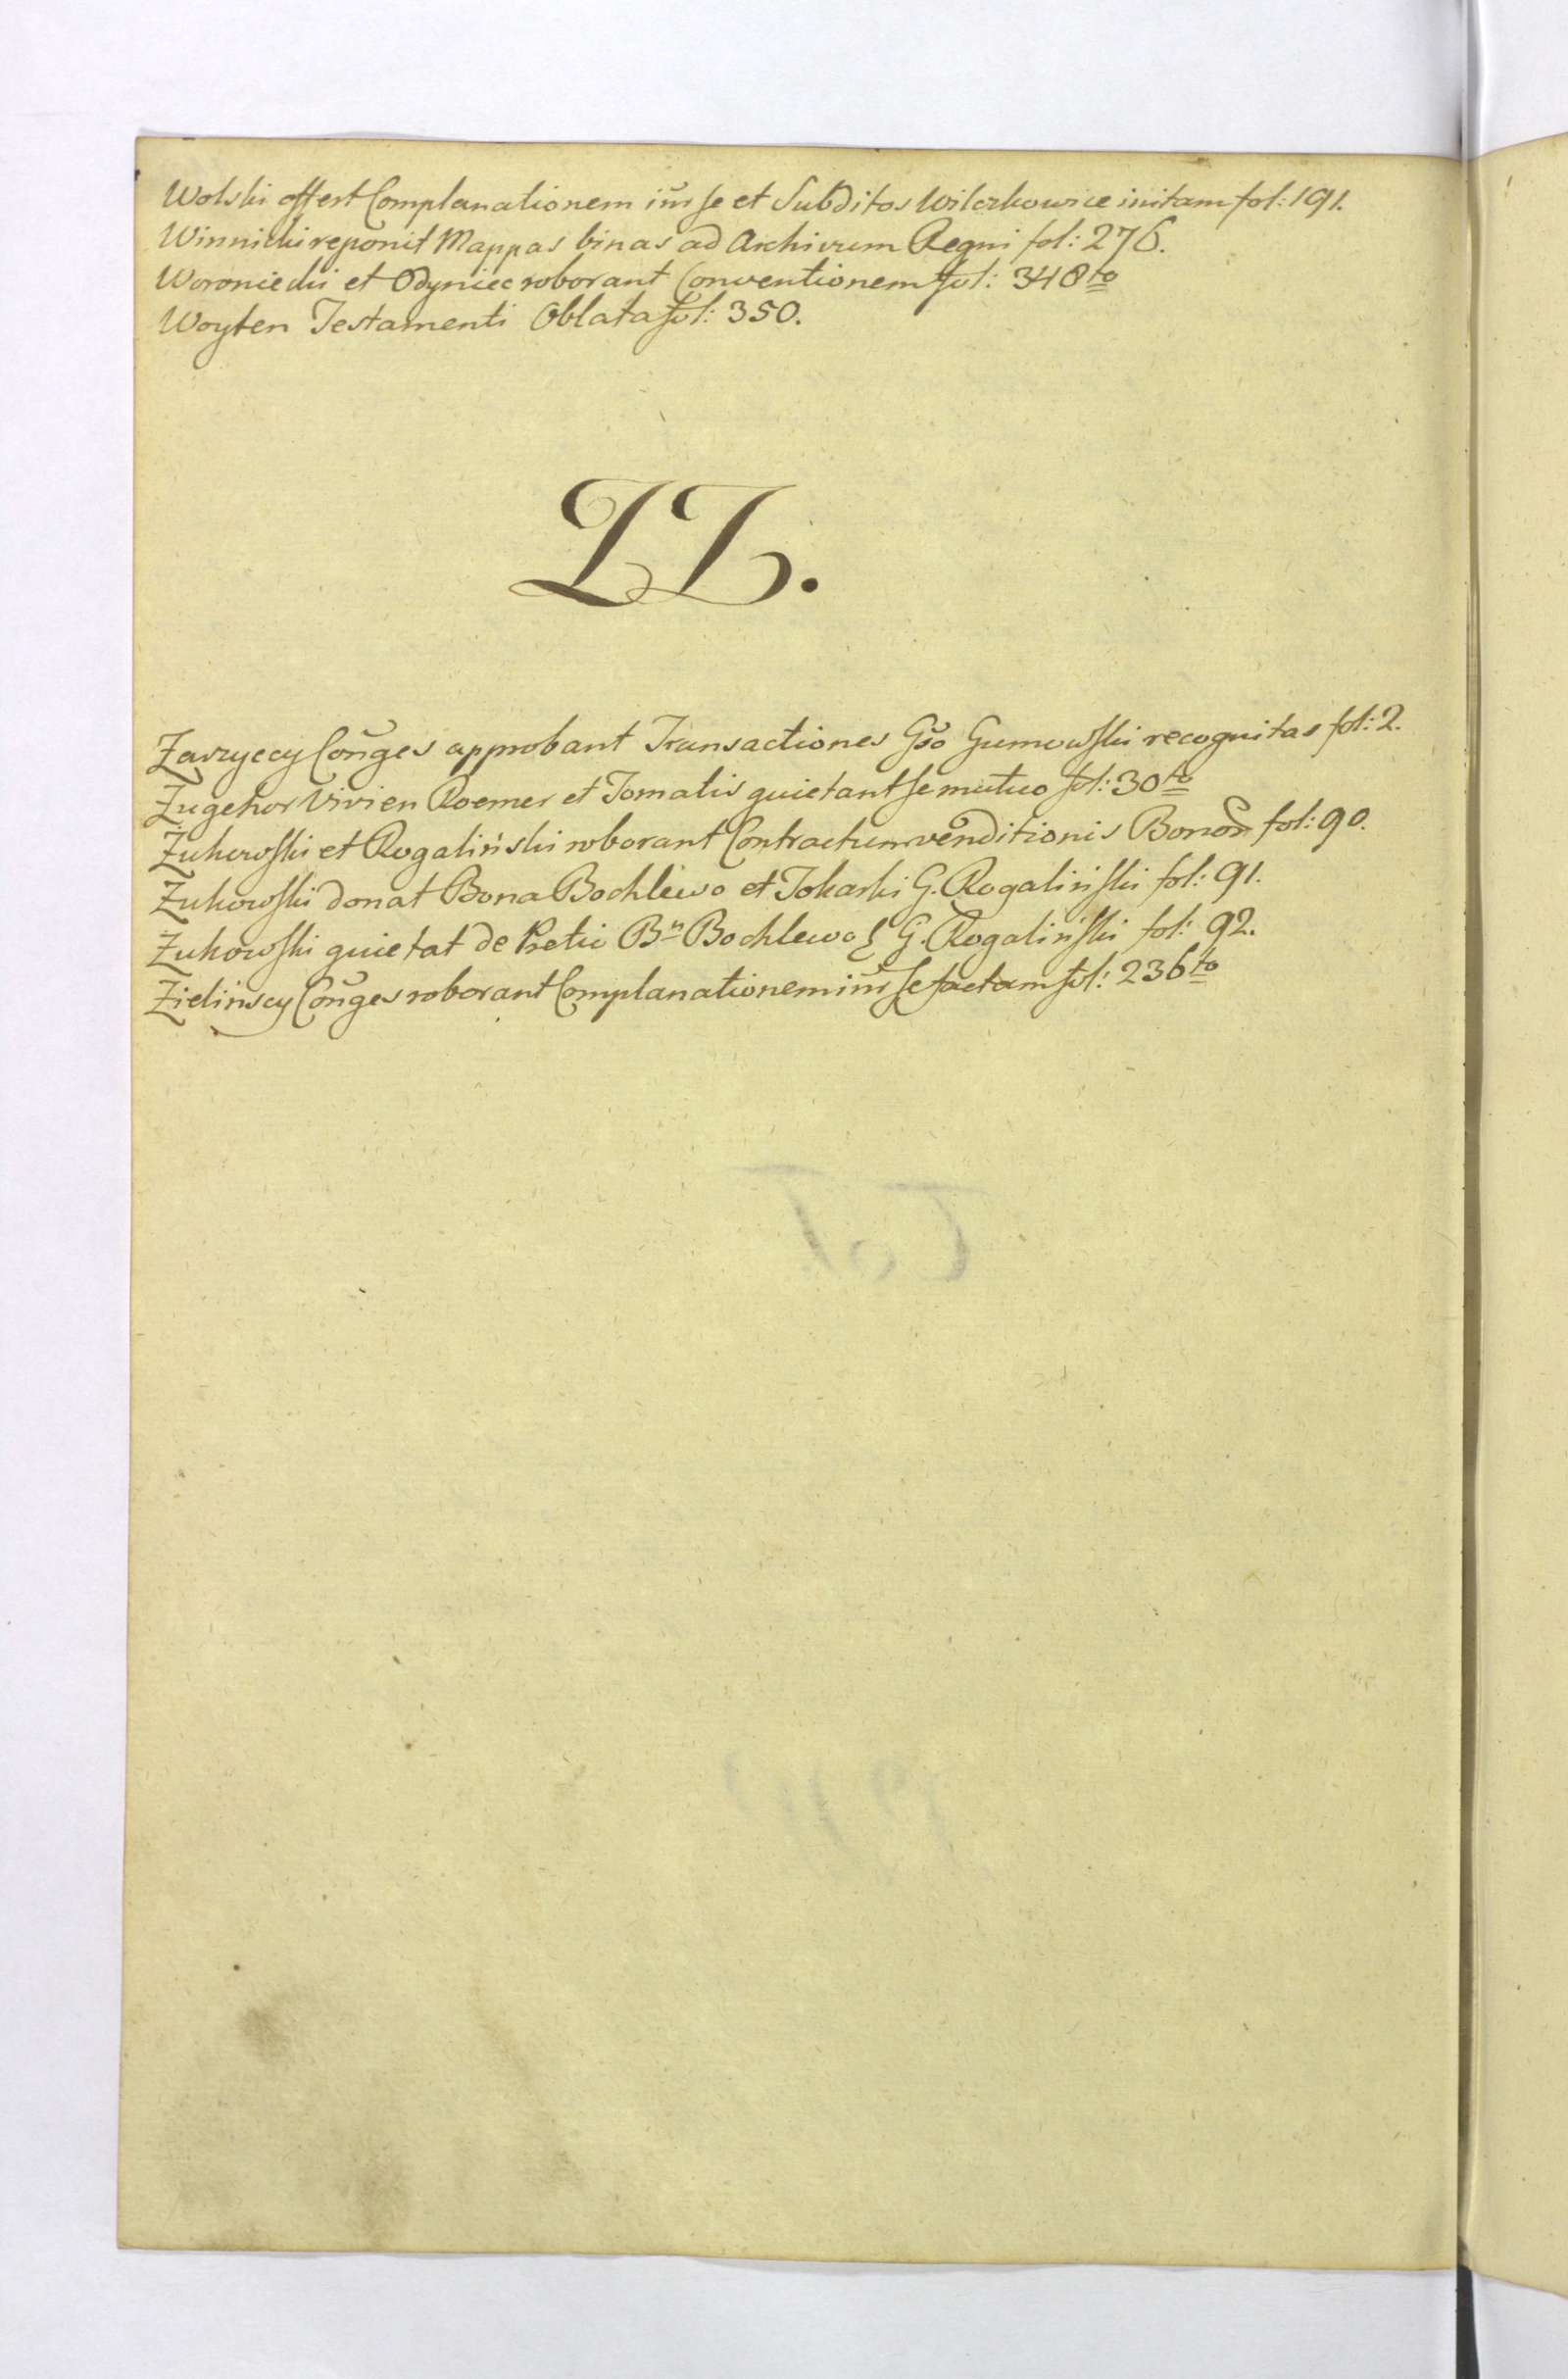 Wolski offert Complanationem im̃ se et Subditos Wilczkowice initam fol: 191.
Winnicki reponit Mappas binas ad Archivum Regni fol: 276.
Woroniecki et Odyniec roborant Conventionem fol: 348to
Woyten Testamenti Oblata fol: 350.
ZZ.
Zavzyccy Coñges approbant Transactiones Gso Gumowski recognitas fol: 2.
Zugehor Vivien Roemer et Tomatis quietant se mutuo fol: 30to
Żukowski et Rogaliński roborant Contractum venditionis Bonon̄ fol: 90.
Zukowski donat Bona Bochlewo et Tokarki G. Rogaliński fol: 91.
Żukowski quietat de Pretio Bn Bochlewo G. Rogaliński fol: 92.
Zielińscy Coñges roborant Complanationem im̃ se factam fol: 236to